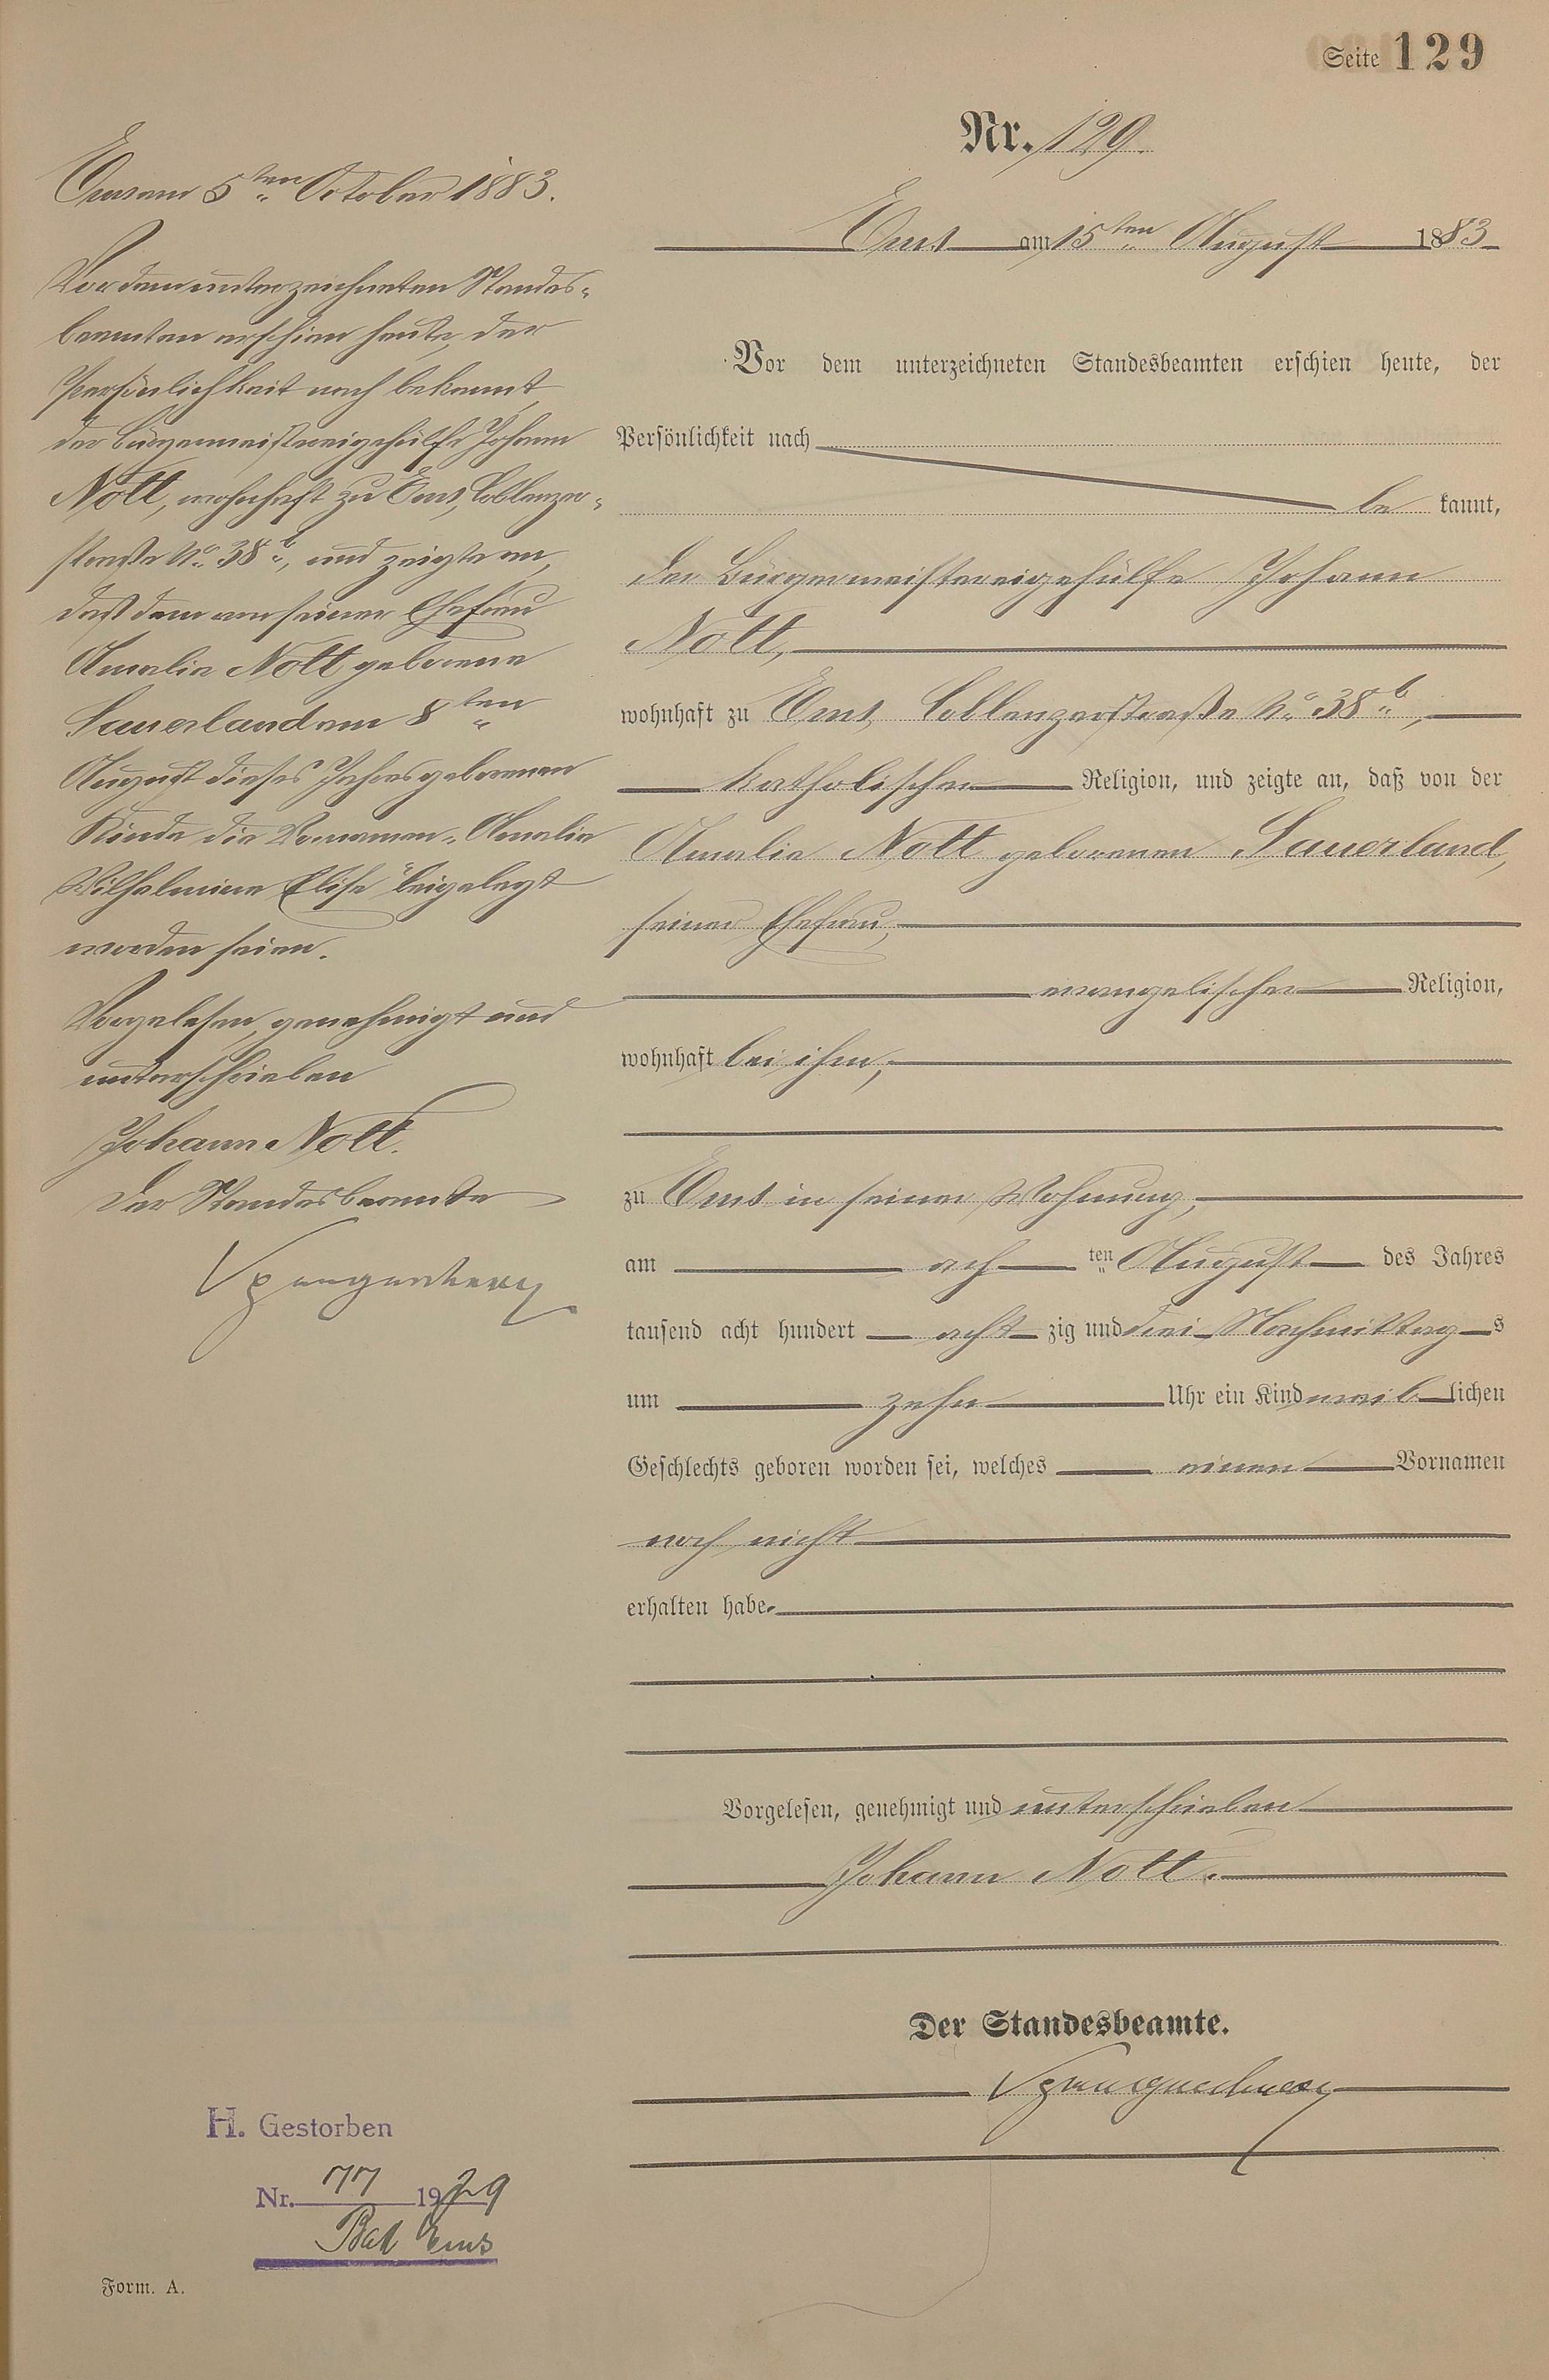 Seite 129
Nr. 129.
Ems am 15ten August 1883
Vor dem unterzeichneten Standesbeamten erschien heute, der
Persönlichkeit nach
be kannt,
der Bürgermeistereigehülfe Johann
Nott,
wohnhaft zu Ems, Coblenzerstraße No. 38b,
katholischer Religion, und zeigte an, daß von der
Amalie Nott geborenen Sauerland,
seiner Ehefrau,
evangelischer Religion,
wohnhaft bei ihm,
zu Ems in seiner Wohnung,
am ach ten August des Jahres
tausend acht hundert acht zig und drei Nachmittag s
um zehn Uhr ein Kind weib lichen
Geschlechts geboren worden sei, welches einen Vornamen
noch nicht
erhalten habe.
Vorgelesen, genehmigt und unterschrieben
Johann Nott.
Der Standesbeamte.
Ems am 5ten October 1883.
Vor dem unterzeichneten Standes-
beamten erschien heute, der
Persönlichkeit nach bekannt,
der Bürgermeistereigehülfe Johann
Nott, wohnhaft zu Ems, Coblenzer-
straße No. 38b, und zeigte an,
daß dem von seiner Ehefrau
Amalie Nott geborene
Sauerland am 8ten
August dieses Jahres geborenen
Kinde die Vornamen „Amalie
Wilhelmine Elise" beigelegt
worden seien.
Vorgelesen, genehmigt und
unterschrieben
Johann Nott.
Der Standesbeamte
H. Gestorben
Nr. 77 1929
Bad Ems
Form. A.